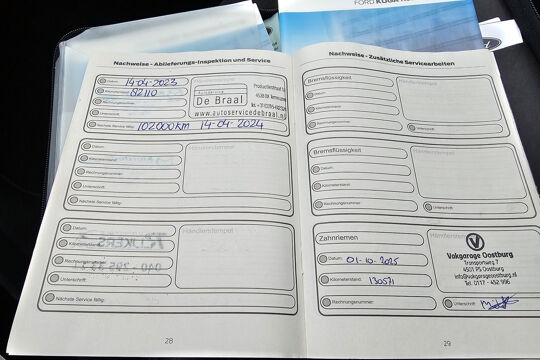 FORD KUGA
Nachweise - Ablieferungs-Inspektion und Service
Datum: 14-04-2023
Kilometerstand: 82110
Rechnungsnummer:
Unterschrift:
Händlerstempel
Autoservice
De Braal
www.autoservicedebraal.nl
Nächste Service fällig: 102000km 14-04-2024
Datum:
Kilometerstand:
Rechnungsnummer:
Unterschrift:
Händlerstempel
Nächste Service fällig:
Datum:
Kilometerstand:
Rechnungsnummer:
Unterschrift:
Händlerstempel
Nächste Service fällig:
28
Nachweise - Zusätzliche Servicearbeiten
Bremsflüssigkeit
Datum:
Kilometerstand:
Rechnungsnummer:
Unterschrift:
Händlerstempel
Bremsflüssigkeit
Datum:
Kilometerstand:
Rechnungsnummer:
Unterschrift:
Händlerstempel
Zahnriemen
Datum: 01-10-2025
Kilometerstand: 130571
Rechnungsnummer:
Händlerstempel
Vakgarage Oostburg
Transportweg 7
4501 PS Oostburg
info@vakgarageoostburg.nl
Tel. 0117 - 452 996
Unterschrift:
29